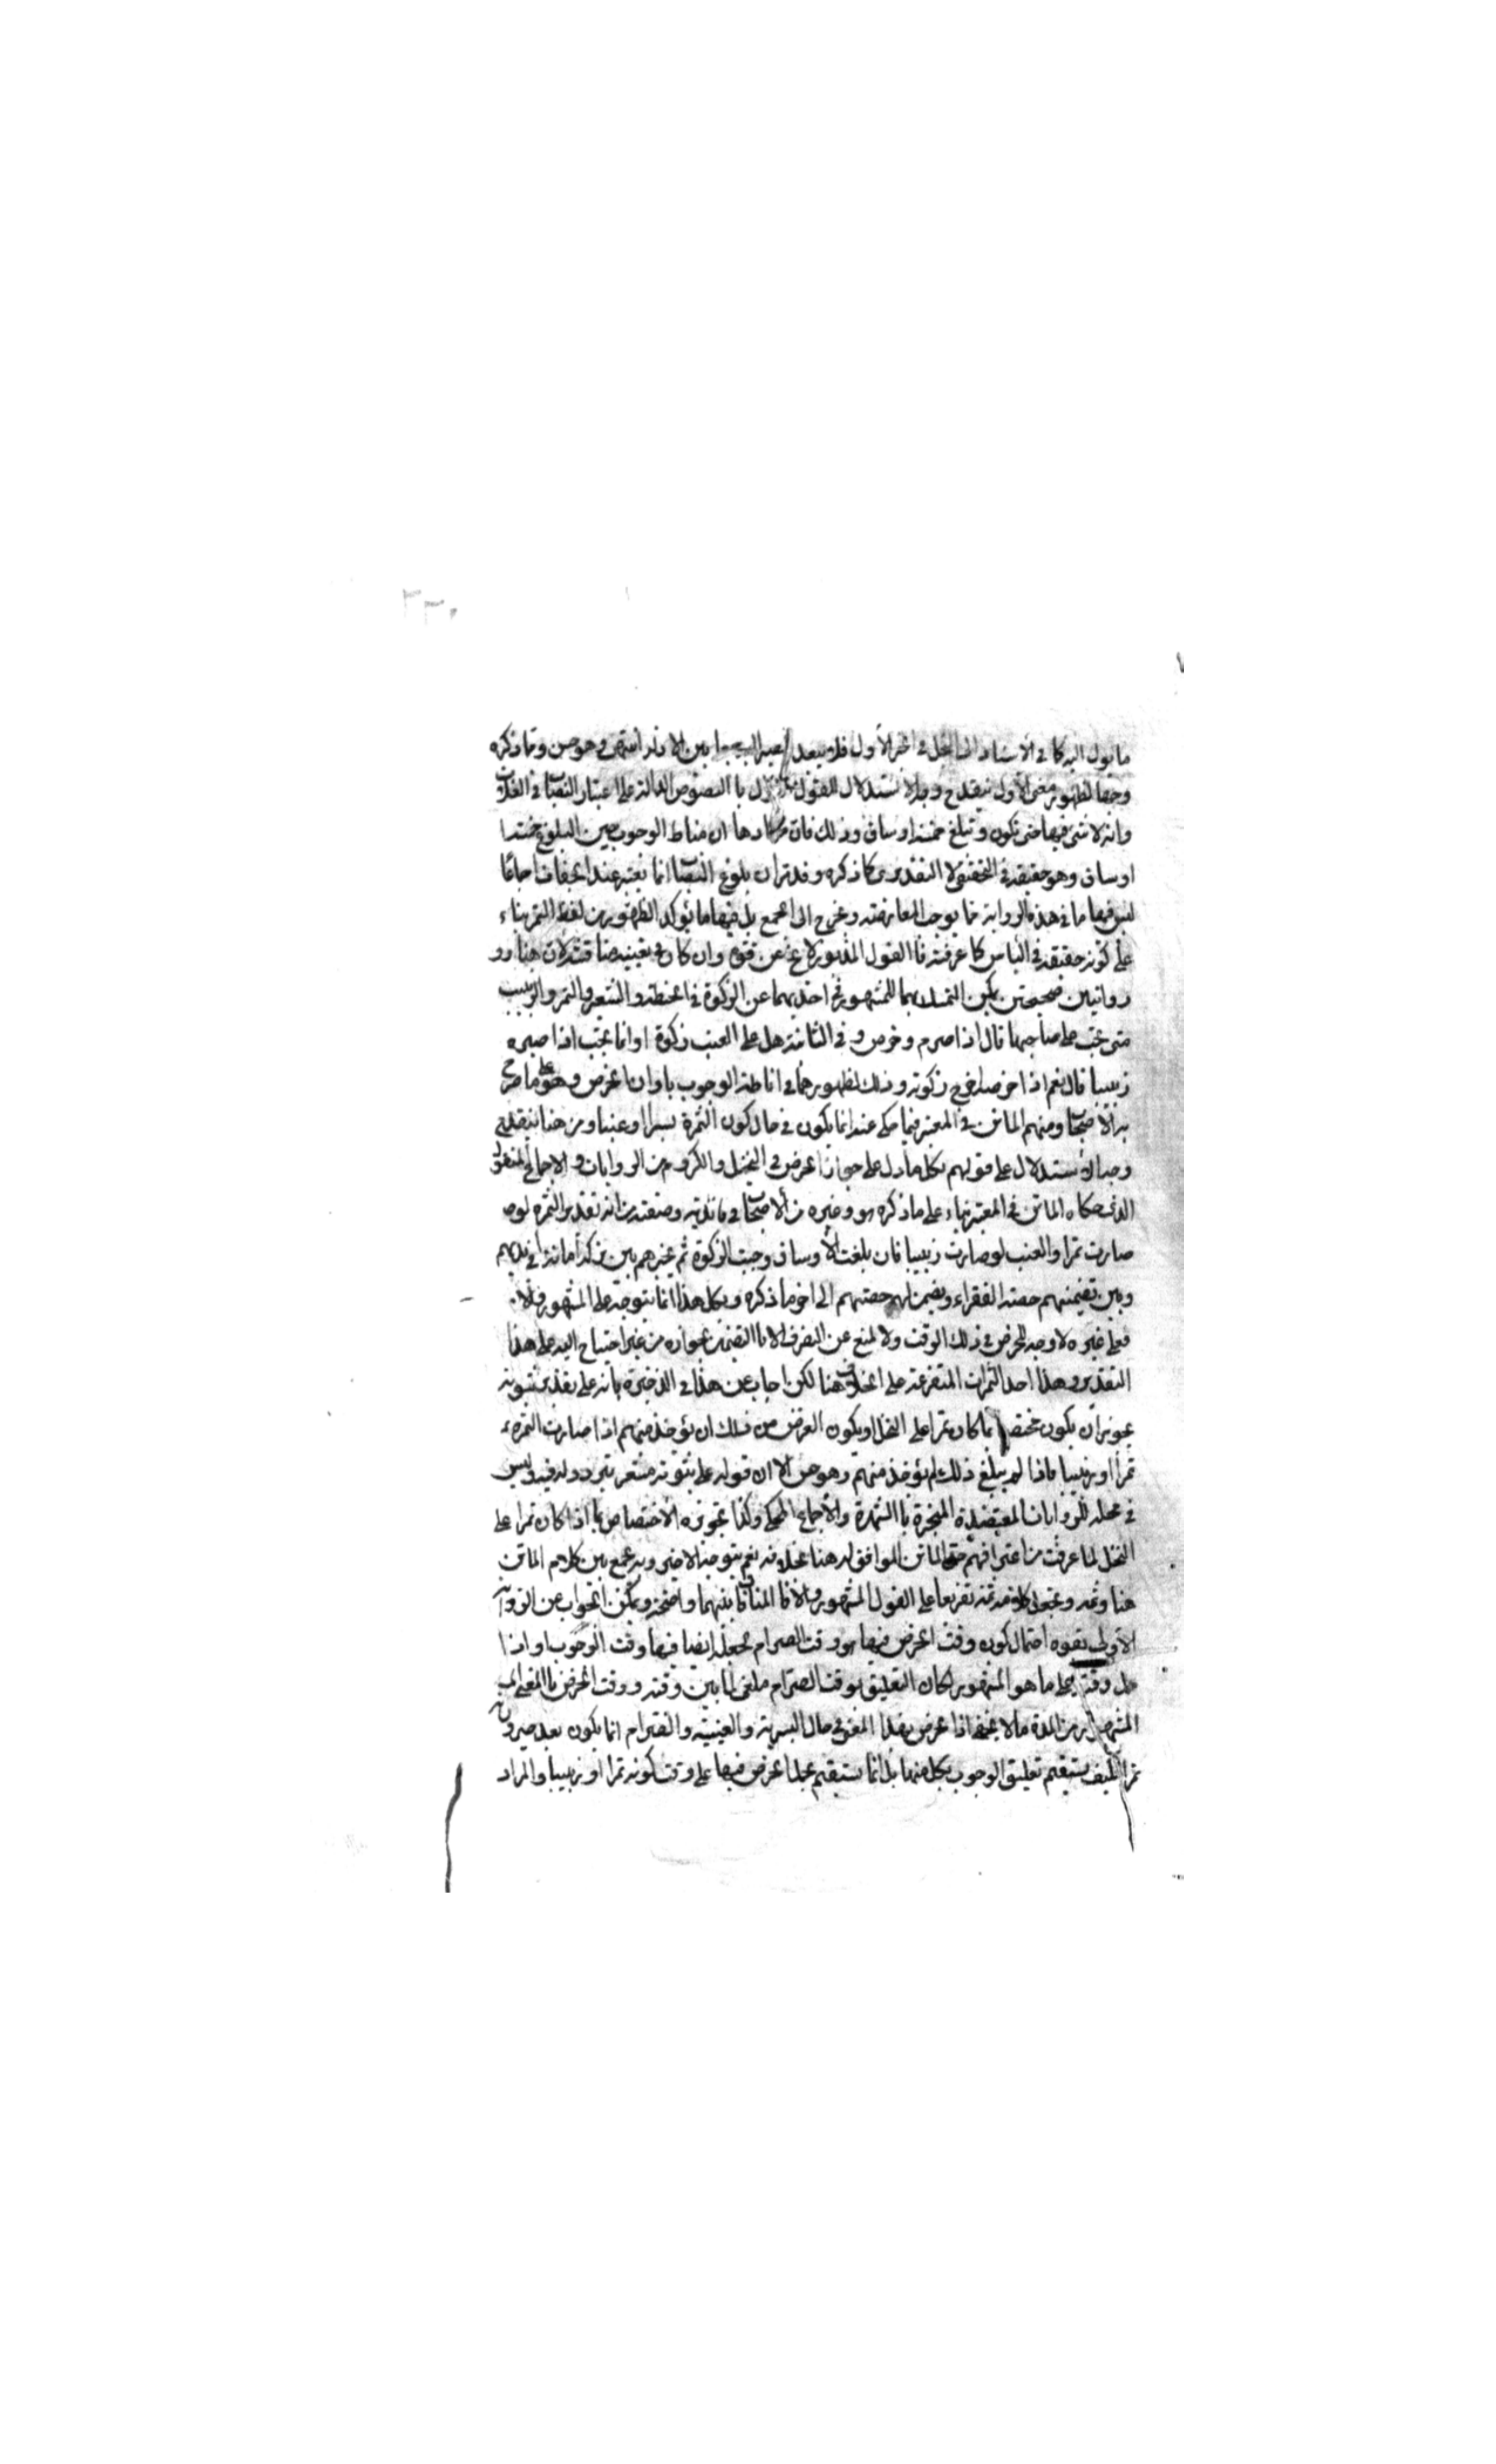 ٢٣٠
ما يؤل اليه كما في الاسناد الى النخل في الخبر الأول فلا يبعد بين الادلة انتهى وهو حسن ومما ذكره
وجها لظهور معنى الأول ينقدح وجه الاستدلال للقول الأول باالنصوص الدالة على اعتبار النصاب في الغلات
وانه لا شئ فيها حتى تكون وتبلغ خمسة اوساق وذلك فان مفادها ان مناط الوجوب حين البلوغ خمسة
اوساق وهو حقيقة في التحقيقي لا التقديري كما ذكره وقد مر ان بلوغ النصاب انما يعتبر عند الجفاف اجماعا
ليس فيها ما في هذه الرواية مما يوجب المعارضة ويخرج الى الجمع بل فيها ما يؤكد الظهور من لفظ التمر بناء
على كونه حقيقة في اليابس كما عرفته فاالقول المذبور لا يخ عن قوة وان كان في تعيينه مناقشة لان هنا
روايتين صحيحتين يمكن التمسك بهما للمشهور في احديهما عن الزكوة في الحنطة والشعير والتمر والزبيب
متى تجب على صاحبها قال اذا صرم وخرص وفي الثانية هل على العنب زكوة او انما تجب اذا صيره
زبيبا قال نعم اذا خرصه اخرج زكوته وذلك لظهورهما في اناطة الوجوب باوان الخرص وهو على ما صرح
به الاصحاب ومنهم الماتن في المعتبر فيما حكى عنه انما يكون في حال كون الثمرة بسرا او عنبا ومن هنا ينقدح
وجه الاستدلال على قولهم بكل ما دل على جواز الخرص في النخيل والكروم من الروايات والاجماع المنقول
الذي حكاه الماتن في المعتبر بناء على ما ذكره هو وغيره من الاصحاب في فائدته وصفته من انه تقدير الثمرة لو
صارت تمرا والعنب لو صارت زبيبا فان بلغت الأوساق وجبت الزكوة ثم يخيرهم بين تركه أمانة في يدهم
وبين تضمينهم حصة الفقراء ويضمن لهم حصتهم الى اخر ما ذكره وبكل هذا انما يتوجه على المشهور والا
فعلى غيره لا وجه للخرص في ذلك الوقت ولا لمنع عن التصرف الا باالتضمين لجوازه من غير احتياج اليه على هذا
التقدير وهذا احد الثمرات المتفرعة على الخلاف هنا لكن اجاب عن هذا في الذخيرة بانه على تقدير ثبوته
يجوز ان يكون مختصا بما كان تمرا على النخل او يكون الغرض من ذلك ان يؤخذ منهم اذا صارت الثمرة
تمرا او زبيبا فاذا لم يبلغ ذلك لم يؤخذ منهم وهو حسن الا ان قوله على ثبوته مشعر بتردده فيه وليس
في محله للروايات المعتضدة المنجبرة باالشهرة والاجماع المحكي وكذا تجويزه الاختصاص بما اذا كان تمرا على
النخل لما عرفت من اعترافهم حتى الماتن الموافق له هنا بخلافه نعم يتوجه الاخير وبه يجمع بين كلام الماتن
هنا وثمة ويجعل كلامه ثمة تفريعا على القول المشهور والا فا المنافات بينهما واضحة ويمكن الجواب عن الرواية
الأولى بقوة احتمال كون وقت الخرص فيها هو وقت الصرام بجعله ايضا فيها وقت الوجوب او اذا
حل وقته على ما هو المشهور لكان التعليق بوقت الصرام ملغى لما بين وقته ووقت الخرص باالمعنى
المشهور من المدة ما لا يخفى اذا خرص بهذا المعنى في حال البسرية والعنبية والصرام انما يكون بعد صيرورته
تمرا فكيف يستقيم تعليق الوجوب بكل منهما بل انما يستقيم بحمل الخرص فيها على وقت كونه تمرا او زبيبا والمراد